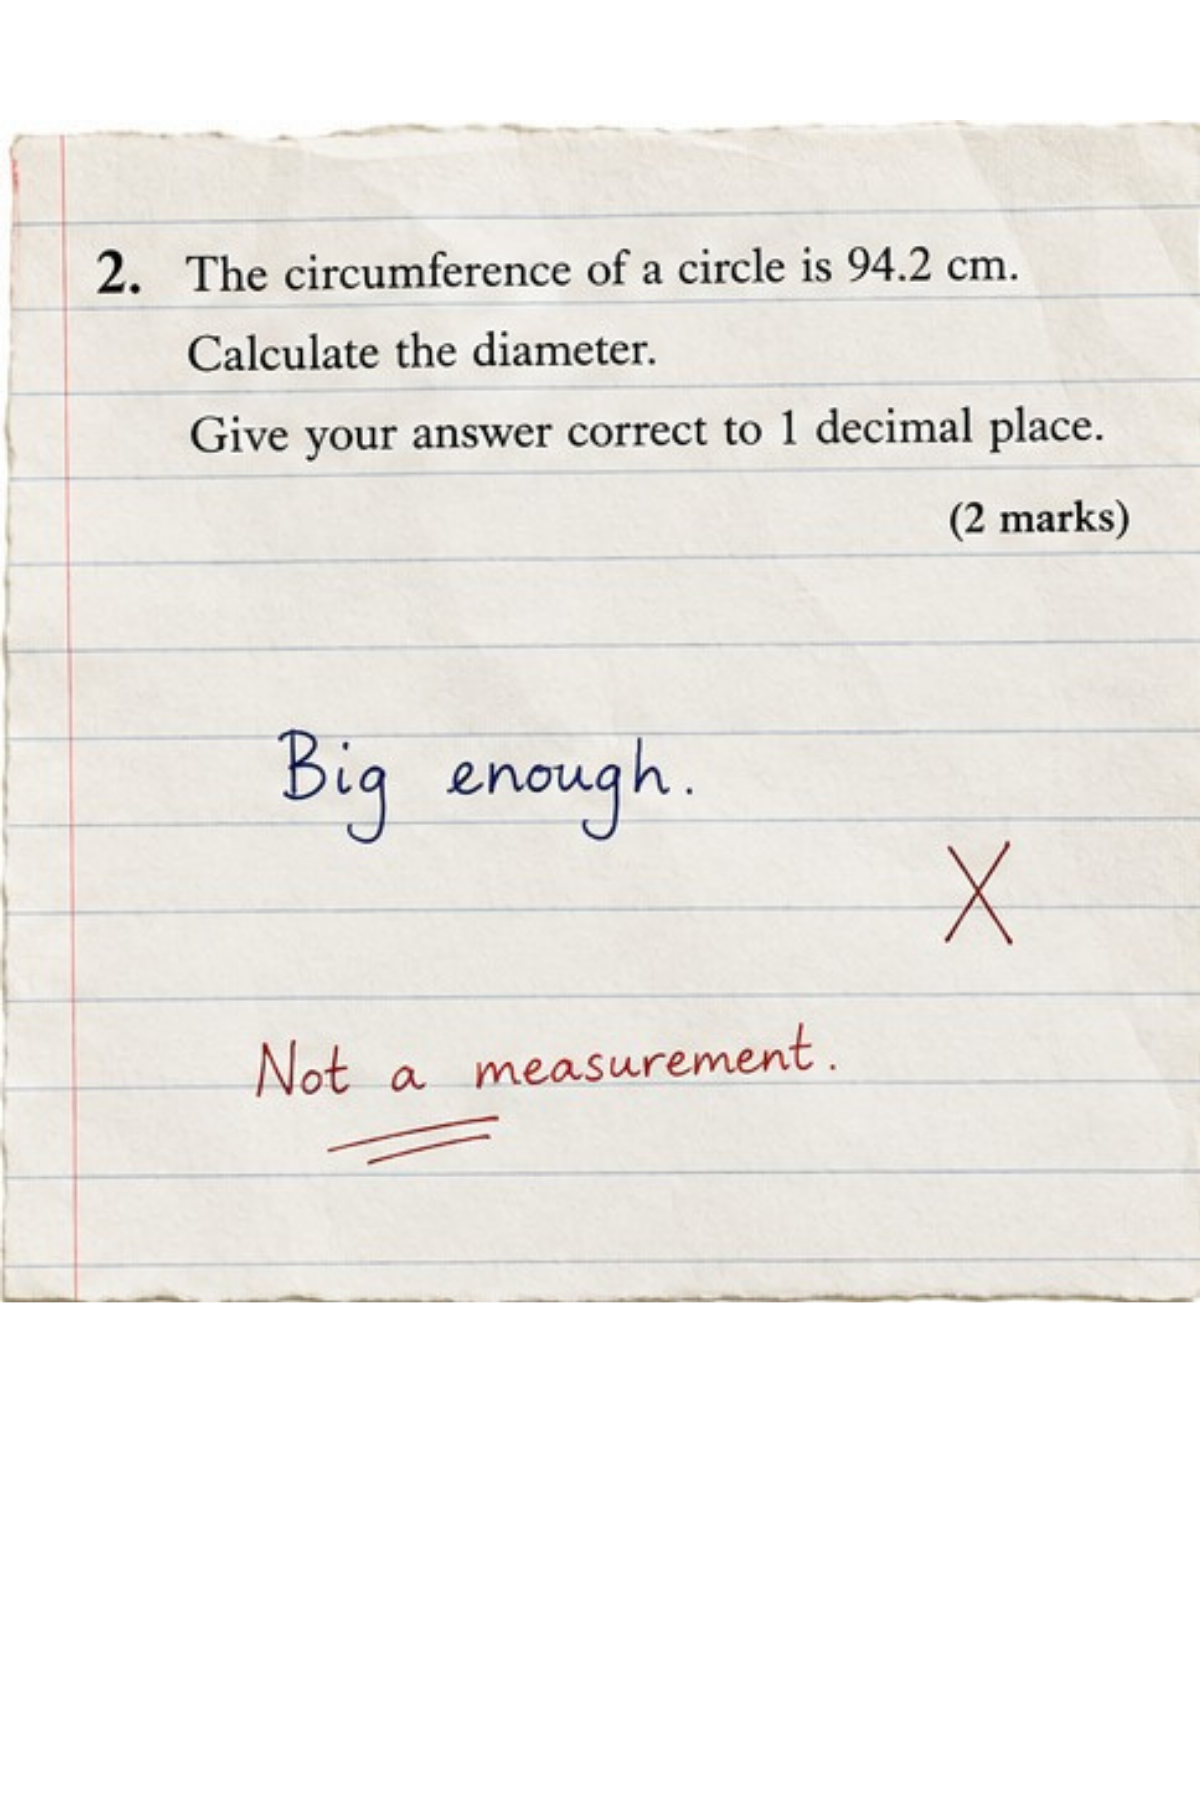 2. The circumference of a circle is 94.2 cm.
Calculate the diameter.
Give your answer correct to 1 decimal place.
(2 marks)
Big enough.
X
Not a measurement.